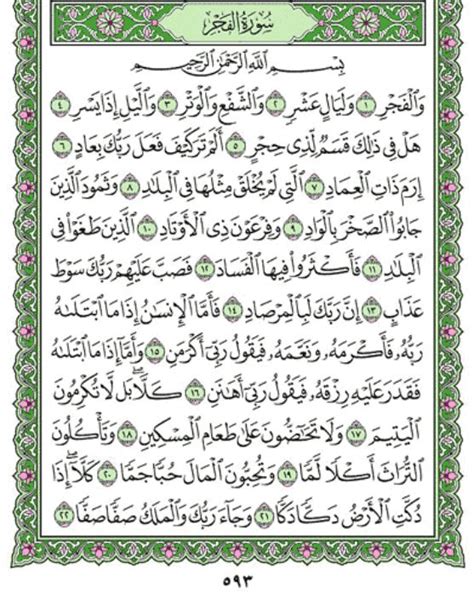 سُورَةُ الفَجْرِ
بِسْمِ اللَّهِ الرَّحْمَٰنِ الرَّحِيمِ
وَالْفَجْرِ ١ وَلَيَالٍ عَشْرٍ ٢ وَالشَّفْعِ وَالْوَتْرِ ٣ وَاللَّيْلِ إِذَا يَسْرِ ٤
هَلْ فِي ذَٰلِكَ قَسَمٌ لِّذِي حِجْرٍ ٥ أَلَمْ تَرَ كَيْفَ فَعَلَ رَبُّكَ بِعَادٍ ٦
إِرَمَ ذَاتِ الْعِمَادِ ٧ الَّتِي لَمْ يُخْلَقْ مِثْلُهَا فِي الْبِلَادِ ٨ وَثَمُودَ الَّذِينَ
جَابُوا الصَّخْرَ بِالْوَادِ ٩ وَفِرْعَوْنَ ذِي الْأَوْتَادِ ١٠ الَّذِينَ طَغَوْا فِي
الْبِلَادِ ١١ فَأَكْثَرُوا فِيهَا الْفَسَادَ ١٢ فَصَبَّ عَلَيْهِمْ رَبُّكَ سَوْطَ
عَذَابٍ ١٣ إِنَّ رَبَّكَ لَبِالْمِرْصَادِ ١٤ فَأَمَّا الْإِنسَٰنُ إِذَا مَا ابْتَلَىٰهُ
رَبُّهُۥ فَأَكْرَمَهُۥ وَنَعَّمَهُۥ فَيَقُولُ رَبِّي أَكْرَمَنِ ١٥ وَأَمَّا إِذَا مَا ابْتَلَىٰهُ
فَقَدَرَ عَلَيْهِ رِزْقَهُۥ فَيَقُولُ رَبِّي أَهَٰنَنِ ١٦ كَلَّا ۖ بَل لَّا تُكْرِمُونَ
الْيَتِيمَ ١٧ وَلَا تَحَٰٓضُّونَ عَلَىٰ طَعَامِ الْمِسْكِينِ ١٨ وَتَأْكُلُونَ
التُّرَاثَ أَكْلًا لَّمًّا ١٩ وَتُحِبُّونَ الْمَالَ حُبًّا جَمًّا ٢٠ كَلَّا ۖ إِذَا
دُكَّتِ الْأَرْضُ دَكًّا دَكًّا ٢١ وَجَاءَ رَبُّكَ وَالْمَلَكُ صَفًّا صَفًّا ٢٢
٥٩٣